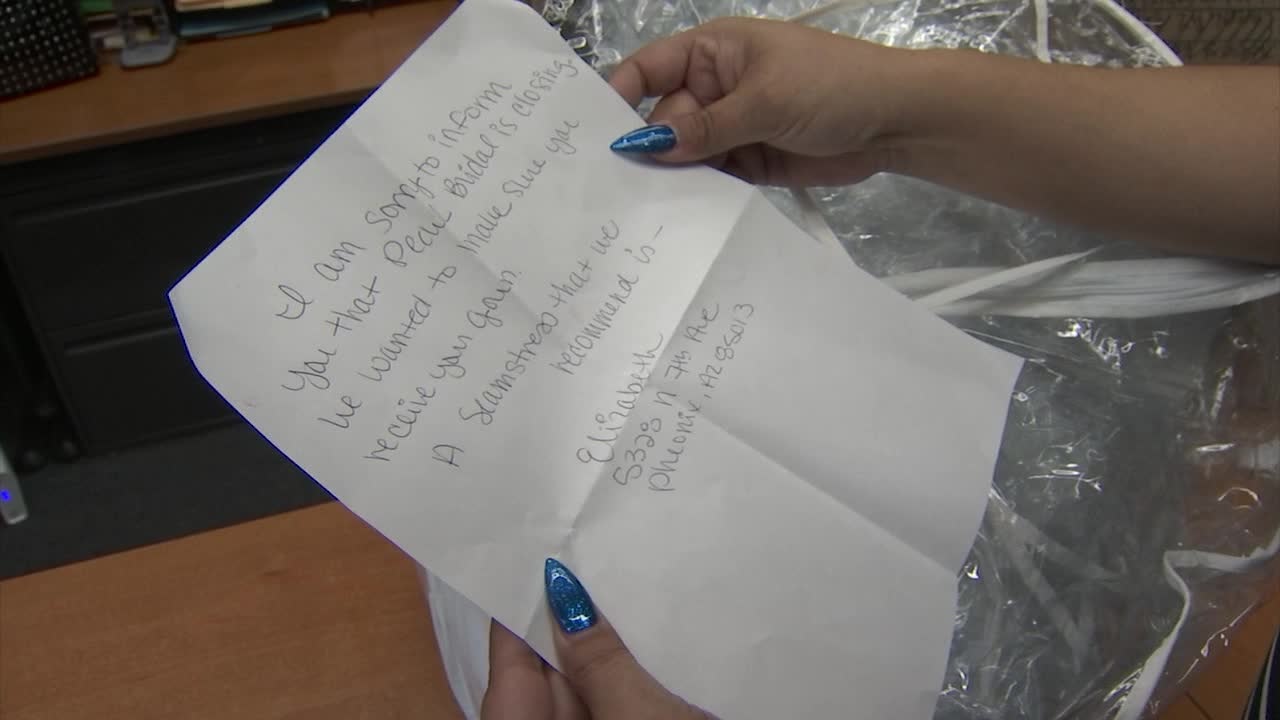 I am sorry to inform
you that Pearl Bridal is closing.
We wanted to make sure you
receive you gown.
A Seamstress that we
recommend is -
Elizabeth
5328 N 7th Ave
Pheonix, AZ 85013